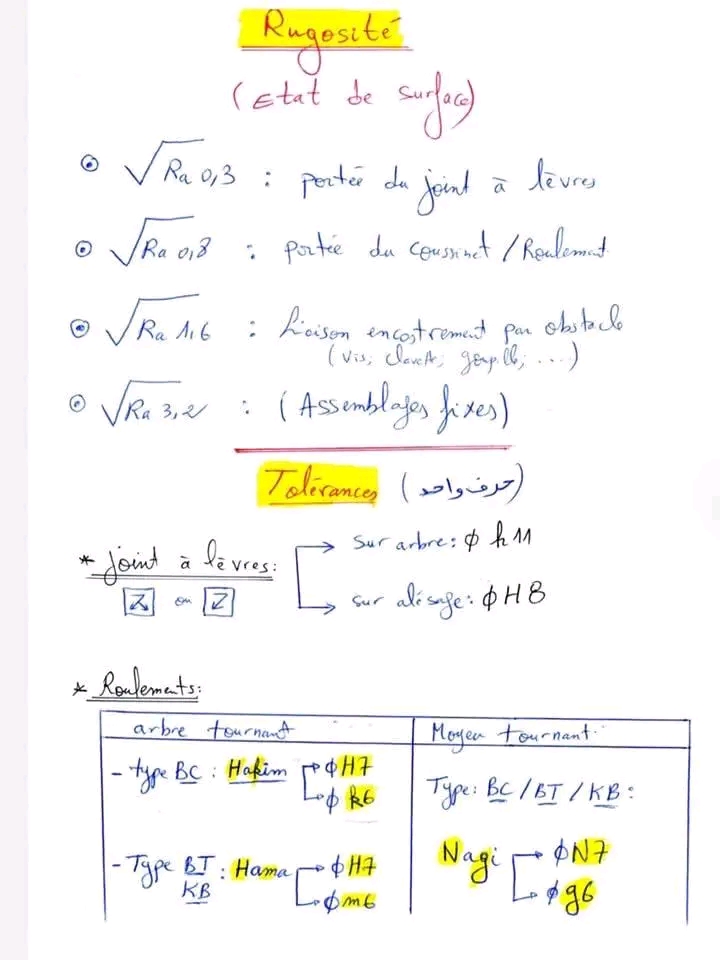 Rugosité
(Etat de surface)
√Ra 0,3 : portée du joint à lèvres
√Ra 0,8 : portée du coussinet / Roulement
√Ra 1,6 : Liaison encastrement par obstacle
(vis, clavette, goupille, ...)
√Ra 3,2 : (Assemblages fixes)
Tolérances (حرف واحد)
* joint à lèvres:
sur arbre: ϕ h11
ou
sur alésage: ϕ H8
* Roulements:
arbre tournant
- type BC : Hakim → ϕ H7
→ ϕ k6
- Type BT KB : Hama → ϕ H7
→ ϕ m6
Moyeu tournant
Type: BC / BT / KB :
Nagi → ϕ N7
→ ϕ g6